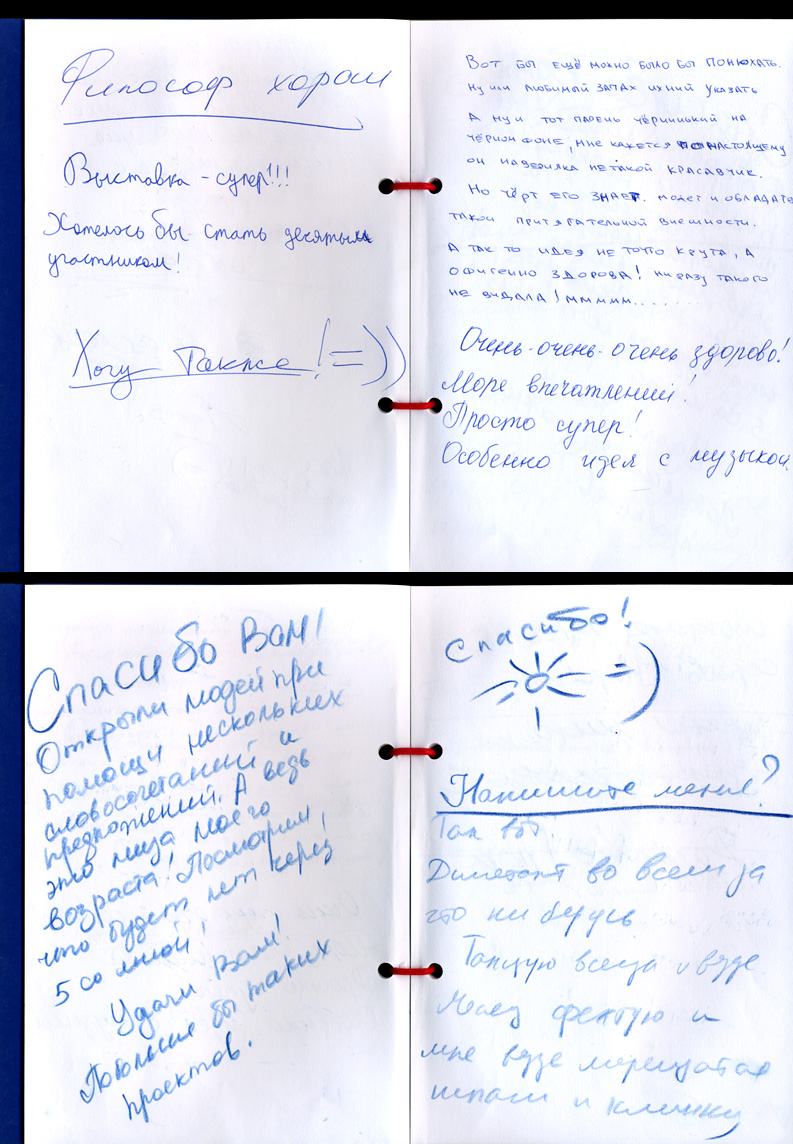 Философ хорош
Выставка - супер!!!
Хотелось бы стать десятым
участником!
Хочу Также!=))
Вот бы ещё можно было бы понюхать.
ну или любимай запах ихний указать
А ну и тот парень чёрнинький на
чёрном фоне, мне кажется понастоящему
он наверняка не такой красавчик.
Но чёрт его знает. может и обладате
такой притягательной внешности.
А так то идея не то что крута, а
офигенно здорова! ни разу такого
не видала! ммммм.......
Очень-очень-очень здорово!
Море впечатлений!
Просто супер!
Особенно идея с музыкой.
Спасибо Вам!
Открыли людей при
помощи нескольких
словосочетаний и
предложений. А ведь
это лица моего
возраста! Посмотрим,
что будет лет через
5 со мной!
Удачи Вам!
Побольше бы таких
проектов.
Спасибо!
=)
Напишите мение?
Так вот
Дилетант во всем за
что ни берусь
Танцую всегда и везде
фехтую и
мне везде мерещатся
шпаги и клинки